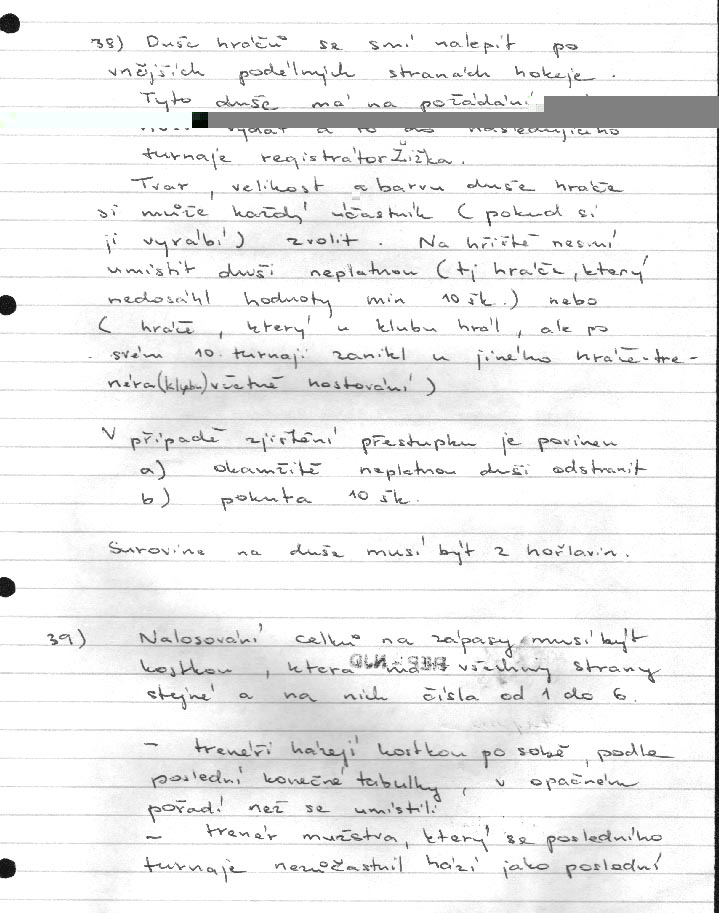 38) Duše hráčů se smí nalepit po
vnějších podélných stranách hokeje.
Tyto duše má na pořádání
vydat a to do následujícího
turnaje registrátor Žižka.
Tvar, velikost a barvu duše hráče
si může každý účastník (pokud si
ji vyrábí) zvolit. Na hřiště nesmí
umístit duši neplatnou (tj hráče, který
nedosáhl hodnoty min 10 šk.) nebo
(hráče, který u klubu hrál, ale po
svém 10. turnaji zanikl u jiného hráče-tre-
néra (klubu) včetně hostování)
V případě zjištění přestupku je povinen
a) okamžitě neplatnou duši odstranit
b) pokuta 10 šk.
Surovina na duše musí být z hořlavin.
39) Nalosování celků na zápasy musí být
kostkou, která má všechny strany
stejné a na nich čísla od 1 do 6.
- trenéři házejí kostkou po sobě, podle
poslední konečné tabulky, v opačném
pořadí než se umístili
- trenér mužstva, který se posledního
turnaje nezúčastnil hází jako poslední